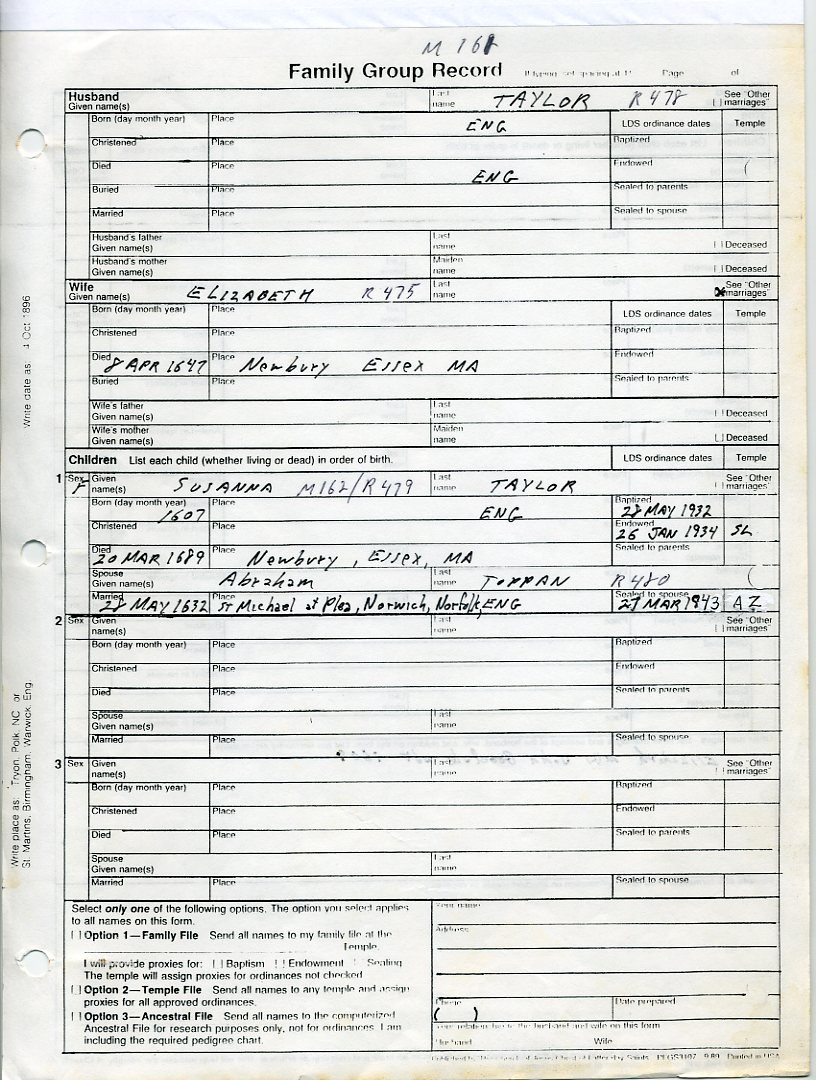 M 161
Family Group Record Page of
Husband
Given name(s) Last name TAYLOR R478 See "Other marriages"
Born (day month year) Place ENG LDS ordinance dates Temple
Christened Place Baptized
Died Place ENG Endowed
Buried Place Sealed to parents
Married Place Sealed to spouse
Husband's father
Given name(s) Last name Deceased
Husband's mother
Given name(s) Maiden name Deceased
Wife
Given name(s) ELIZABETH R475 Last name X See "Other marriages"
Born (day month year) Place LDS ordinance dates Temple
Christened Place Baptized
Died 8 APR 1647 Place Newbury Essex MA Endowed
Buried Place Sealed to parents
Wife's father
Given name(s) Last name Deceased
Wife's mother
Given name(s) Maiden name Deceased
Children List each child (whether living or dead) in order of birth. LDS ordinance dates Temple
1 Sex F Given name(s) SUSANNA M162/R479 Last name TAYLOR See "Other marriages"
Born (day month year) 1607 Place ENG Baptized 28 MAY 1932
Christened Place Endowed 26 JAN 1934 SL
Died 20 MAR 1689 Place Newbury, Essex, MA Sealed to parents
Spouse Abraham Last name TOPPAN R480
Married 28 MAY 1632 Place St Michael at Plea, Norwich, Norfolk, ENG Sealed to spouse 27 MAR 1943 AZ
2 Sex Given name(s) Last name See "Other marriages"
Born (day month year) Place Baptized
Christened Place Endowed
Died Place Sealed to parents
Spouse
Given name(s) Last name
Married Place Sealed to spouse
3 Sex Given name(s) Last name See "Other marriages"
Born (day month year) Place Baptized
Christened Place Endowed
Died Place Sealed to parents
Spouse
Given name(s) Last name
Married Place Sealed to spouse
Write date as: 4 Oct 1896
Write place as: Tryon, Polk, NC or
St. Martins, Birmingham, Warwick, Eng.
Select only one of the following options. The option you select applies
to all names on this form.
Option 1—Family File Send all names to my family file at the
Temple.
I will provide proxies for: Baptism Endowment Sealing
The temple will assign proxies for ordinances not checked
Option 2—Temple File Send all names to any temple and assign
proxies for all approved ordinances.
Option 3—Ancestral File Send all names to the computerized
Ancestral File for research purposes only, not for ordinances. I am
including the required pedigree chart.
Your name
Address
Phone Date prepared
( )
Your relationship to the husband and wife on this form
Husband Wife
PFGS3107 9/89 Printed in USA